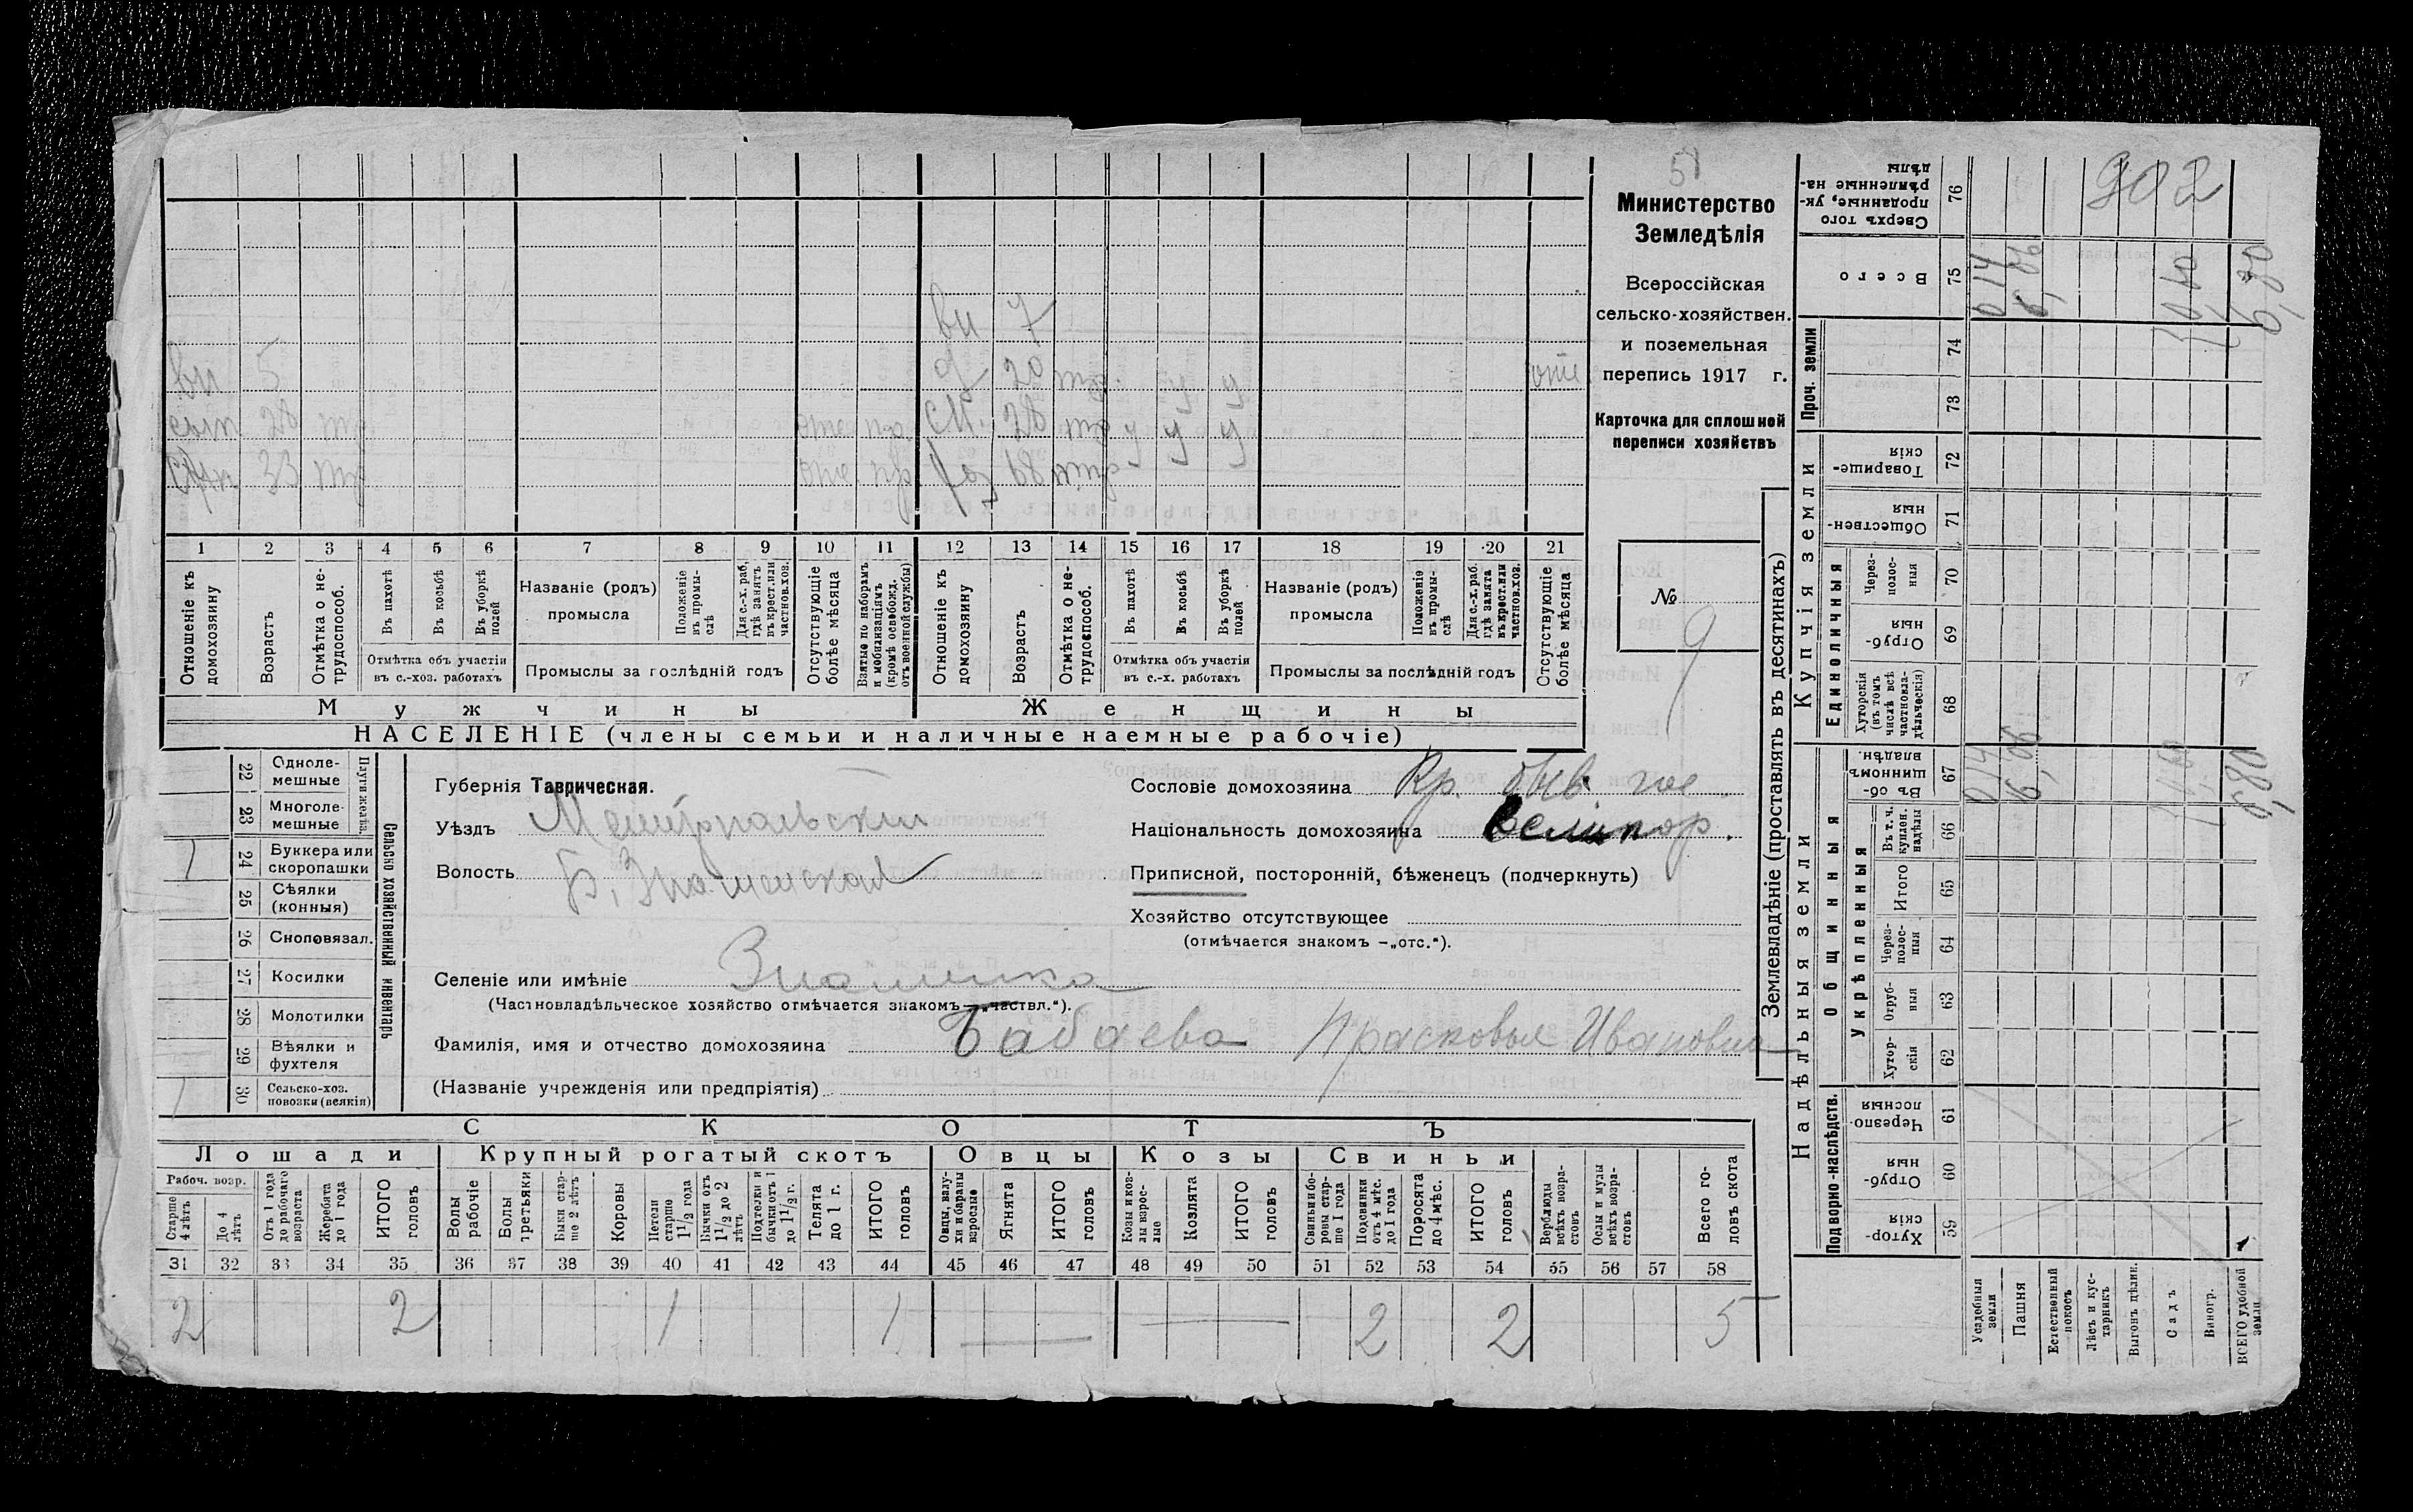 51
Министерство
Земледѣлія
Всероссійская
сельско-хозяйствен.
и поземельная
перепись 1917 г.
Карточка для сплошной
переписи хозяйствъ
№ 9
902
вн 7
вн 5 20 отс
сын 28 тр отс 28 тр у у у
сын 33 тр отс 68
1 2 3 4 5 6 7 8 9 10 11 12 13 14 15 16 17 18 19 20 21
Отношеніе къ домохозяину
Возрастъ
Отмѣтка о не-трудоспособ.
Въ пахотѣ
Въ косьбѣ
Въ уборкѣ полей
Отмѣтка объ участіи въ с.-хоз. работахъ
Названіе (родъ) промысла
Положеніе въ промы-слѣ
Для с.-х. раб. гдѣ занятъ въ крест. или частнов. хоз.
Промыслы за послѣдній годъ
Отсутствующіе болѣе мѣсяца
Взятые по наборамъ и мобилизаціямъ (кромѣ освобожд. отъ военной службы)
Отношеніе къ домохозяину
Возрастъ
Отмѣтка о не-трудоспособ.
Въ пахотѣ
Въ косьбѣ
Въ уборкѣ полей
Отмѣтка объ участіи въ с.-х. работахъ
Названіе (родъ) промысла
Положеніе въ промы-слѣ
Для с.-х. раб. гдѣ занята въ крест. или частнов. хоз.
Промыслы за послѣдній годъ
Отсутствующіе болѣе мѣсяца
Мужчины Женщины
НАСЕЛЕНІЕ (члены семьи и наличные наемные рабочіе)
22 Одноле-мешные
23 Многоле-мешные
Плуги желѣз.
1 24 Буккера или скоропашки
25 Сѣялки (конныя)
26 Сноповязал.
27 Косилки
28 Молотилки
29 Вѣялки и фухтеля
1 30 Сельско-хоз. повозки (всякія)
Сельско хозяйственный инвентарь
Губернія Таврическая.
Уѣздъ
Волость Б. Знаменская
Селеніе или имѣніе Знаменка
(Частновладѣльческое хозяйство отмѣчается знакомъ —„частвл.“).
Фамилія, имя и отчество домохозяина Бабаева Прасковья Ивановна
(Названіе учрежденія или предпріятія)
Сословіе домохозяина Кр. быв. гос
Національность домохозяина великор.
Приписной, посторонній, бѣженецъ (подчеркнуть)
Хозяйство отсутствующее
(отмѣчается знакомъ —„отс.“).
СКОТЪ
Лошади Крупный рогатый скотъ Овцы Козы Свиньи
Рабоч. возр.
Старше 4 лѣтъ
До 4 лѣтъ
Отъ 1 года до рабочаго возраста
Жеребята до 1 года
ИТОГО головъ
Волы рабочіе
Волы третьяки
Быки стар-ше 2 лѣтъ
Коровы
Нетели старше 1 1/2 года
Бычки отъ 1 1/2 до 2 лѣтъ
Подтелки и бычки отъ 1 до 1 1/2 г.
Телята до 1 г.
ИТОГО головъ
Овцы, валу-хи и бараны взрослые
Ягнята
ИТОГО головъ
Козы и коз-лы взрос-лые
Козлята
ИТОГО головъ
Свиньи и бо-ровы стар-ше 1 года
Подсвинки отъ 4 мѣс. до 1 года
Поросята до 4 мѣс.
ИТОГО головъ
Верблюды всѣхъ возра-стовъ
Ослы и мулы всѣхъ возра-стовъ
Всего го-ловъ скота
31 32 33 34 35 36 37 38 39 40 41 42 43 44 45 46 47 48 49 50 51 52 53 54 55 56 57 58
2 2 1 1 2 2 5
Землевладѣніе (проставлять въ десятинахъ)
Надѣльныя земли
Купчія земли
Проч. земли
Подворно-наслѣдств.
Общинныя
Укрѣпленныя
Единоличныя
Хутор-скія 59
Отруб-ныя 60
Черезпо-лосныя 61
Хутор-скія 62
Отруб-ныя 63
Черезполос-ныя 64
Итого 65
Въ т. ч. куплен. надѣлы 66
Въ об-щинномъ владѣн. 67
Хуторскія (въ томъ числѣ всѣ частновла-дѣльческія) 68
Отруб-ныя 69
Черезполос-ныя 70
Обществен-ныя 71
Товарище-скія 72
73
74
Всего 75
Сверхъ того проданные, ук-рѣпленные на-дѣлы 76
Усадебныя земли
Пашня
Естественный покосъ
Лѣсъ и кус-тарникъ
Выгонъ цѣлин.
Садъ
Виногр.
ВСЕГО удобной земли